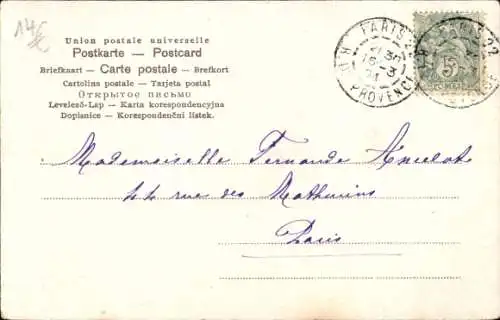 14 €
Union postale universelle
Postkarte — Postcard
Briefkaart — Carte postale — Brefkort
Cartolina postale — Tarjeta postal
Открытое письмо
Levelező-Lap — Karta korespondencyjna
Dopisnice — Korespondenční lístek.
PARIS
PROVENCE
5
Mademoiselle Fernande Ancelot
44 rue des Mathurins
Paris